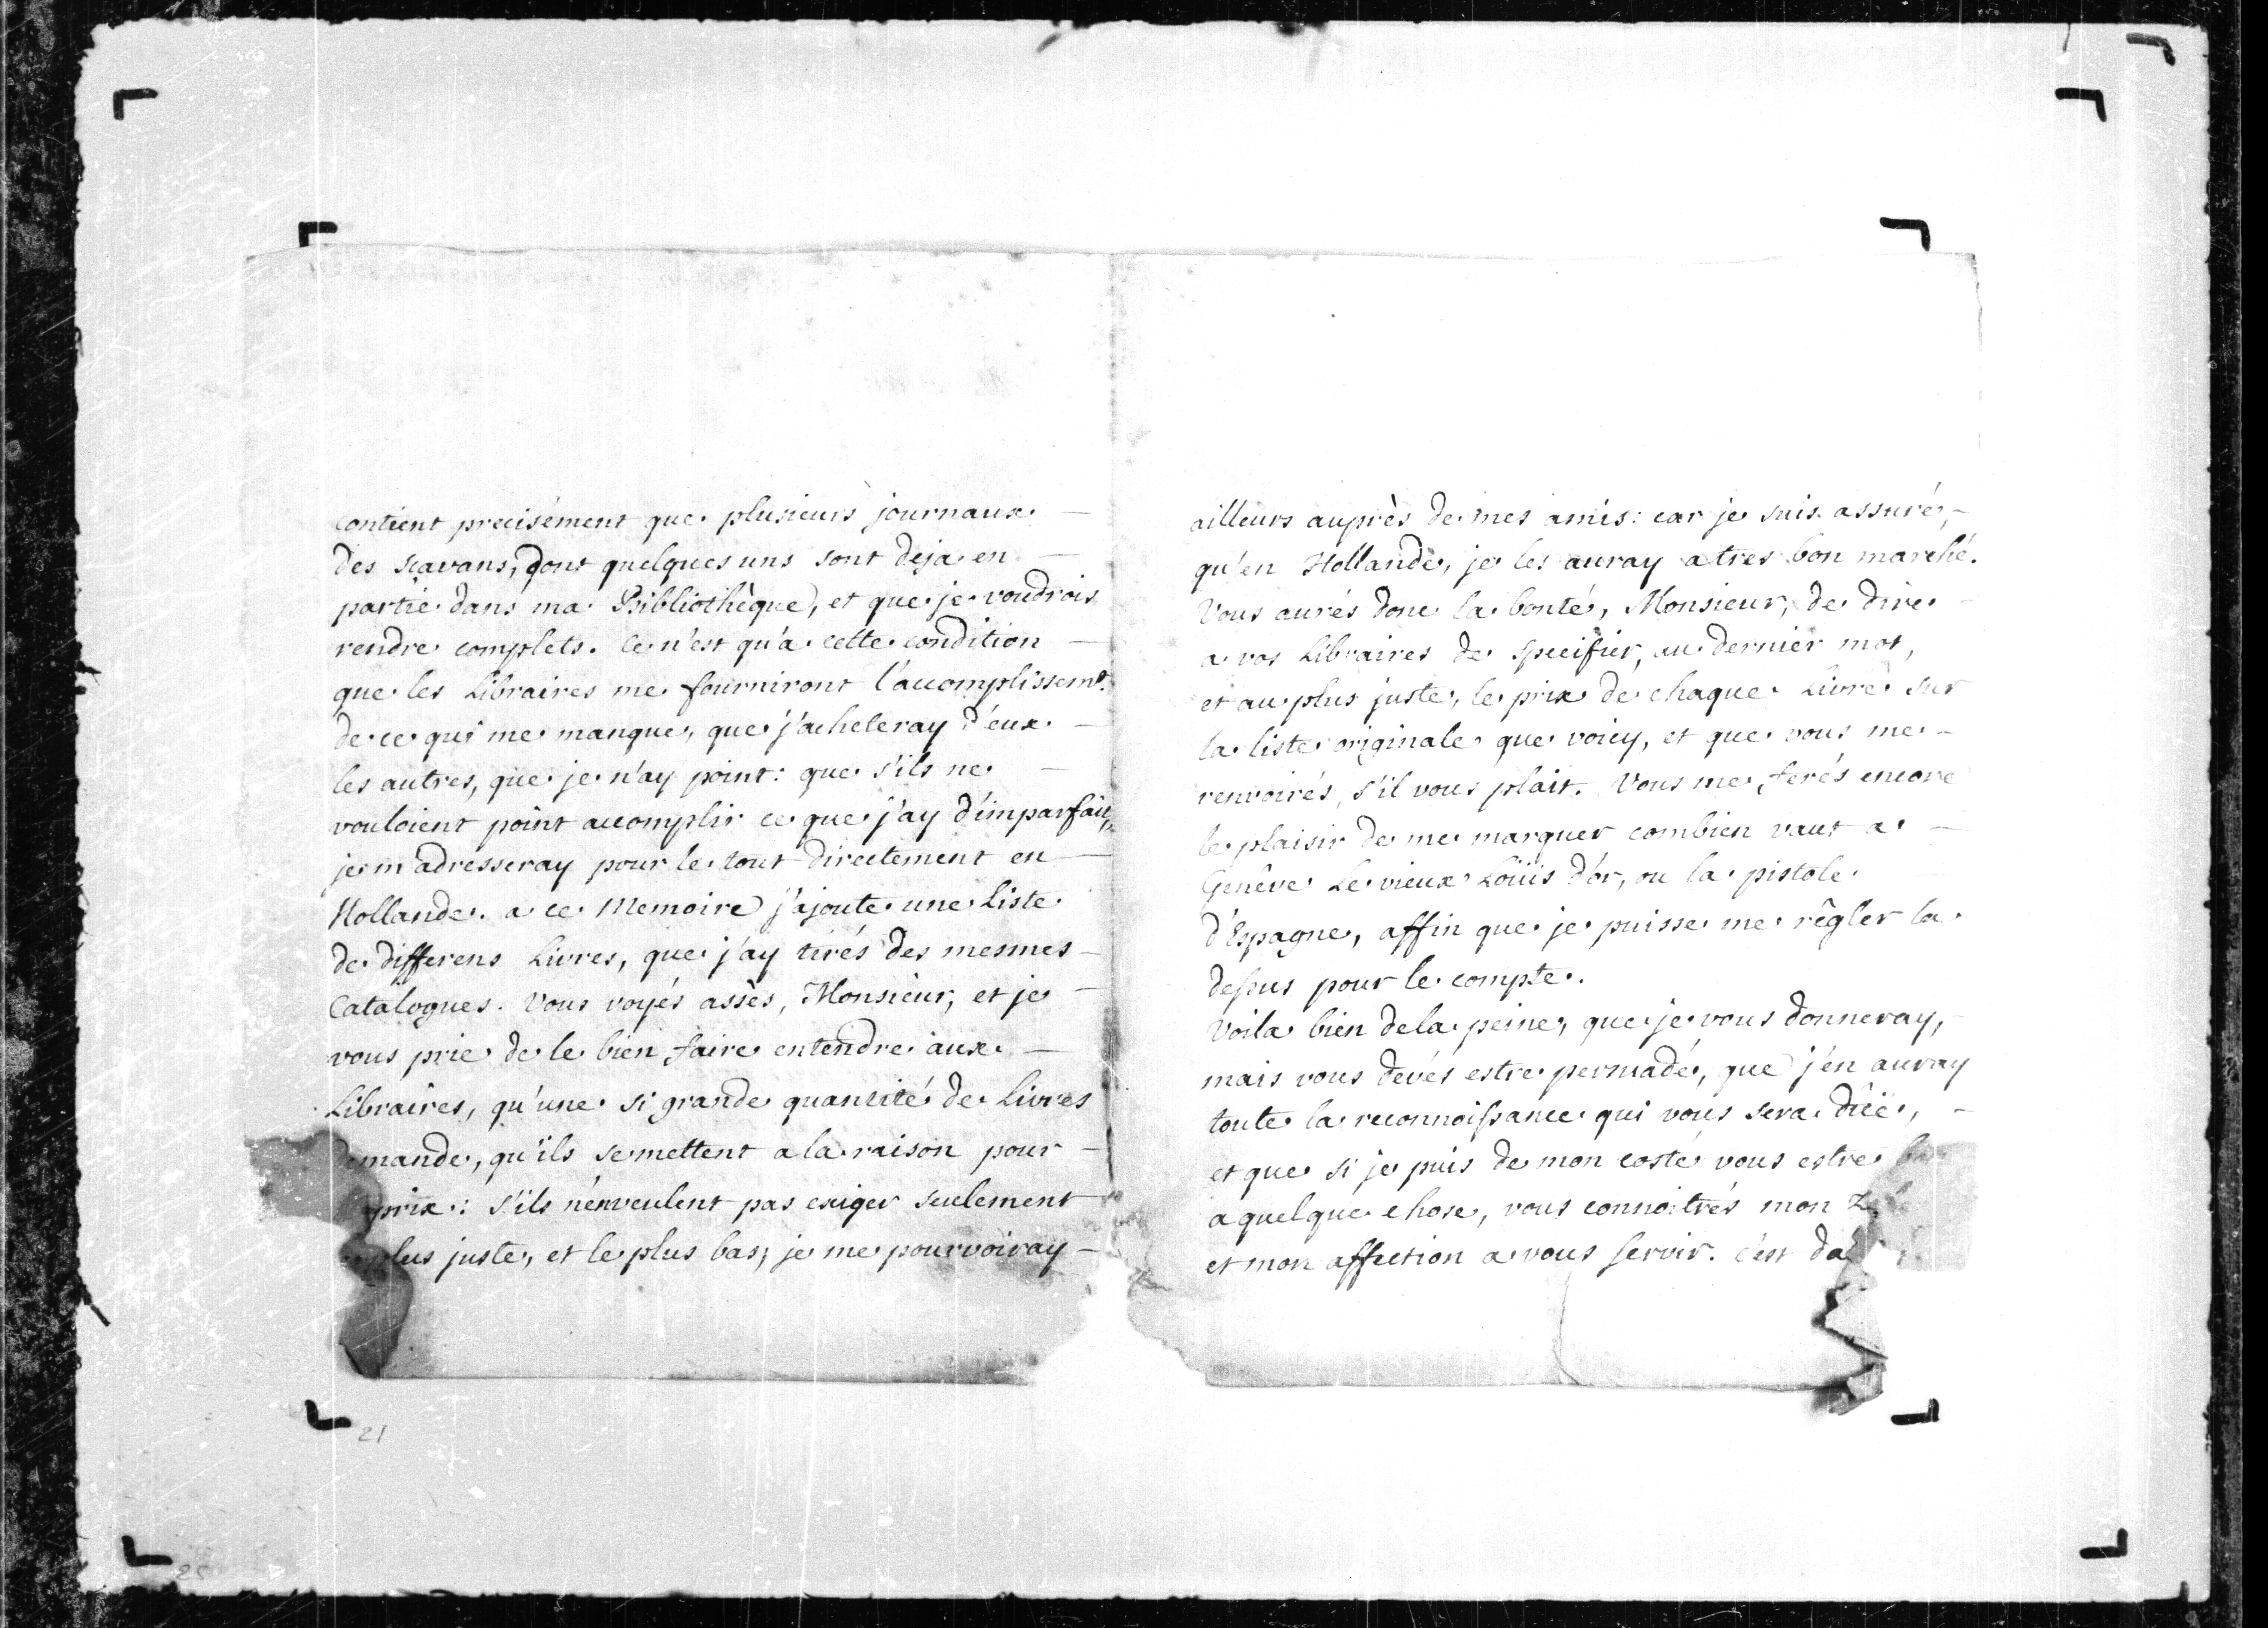 contient precisément que plusieurs journaux
des scavans, dont quelques uns sont deja en
partie dans ma Bibliothèque, et que je voudrois
rendre complets. Ce n'est qu'a cette condition
que les Libraires me fourniront l'accomplissemt.
de ce qui me manque, que j'acheteray d'eux
les autres, que je n'ay point: que s'ils ne
vouloient point accomplir ce que j'ay d'imparfait,
je m'adresseray pour le tout directement en
Hollande. a ce Memoire j'ajoute une Liste
de differens Livres, que j'ay tirés des mesmes
Catalogues. Vous voyés assès, Monsieur, et je
vous prie de le bien faire entendre aux
Libraires, qu'une si grande quantité de Livres
demande, qu'ils se mettent a la raison pour
prix: s'ils n'en veulent pas exiger seulement
plus juste, et le plus bas, je me pourvoiray
ailleurs auprès de mes amis: car je suis assuré,
qu'en Hollande, je les auray a tres bon marché.
Vous aurés donc la bonté, Monsieur, de dire
a vos Libraires de specifier, au dernier mot,
et au plus juste, le prix de chaque Livre sur
la liste originale que voicy, et que vous me
renvoirés, s'il vous plait. Vous me ferés encore
le plaisir de me marquer combien vaut a
Genêve Le vieux Loüis d'or, ou la pistole
d'Espagne, affin que je puisse me règler la
dessus pour le compte.
Voila bien de la peine, que je vous donneray,
mais vous devés estre persuadé, que j'en auray
toute la reconnoissance qui vous sera düe,
et que si je puis de mon costé vous estre
a quelque chose, vous connoitrés mon
et mon affection a vous servir. c'est
21
25